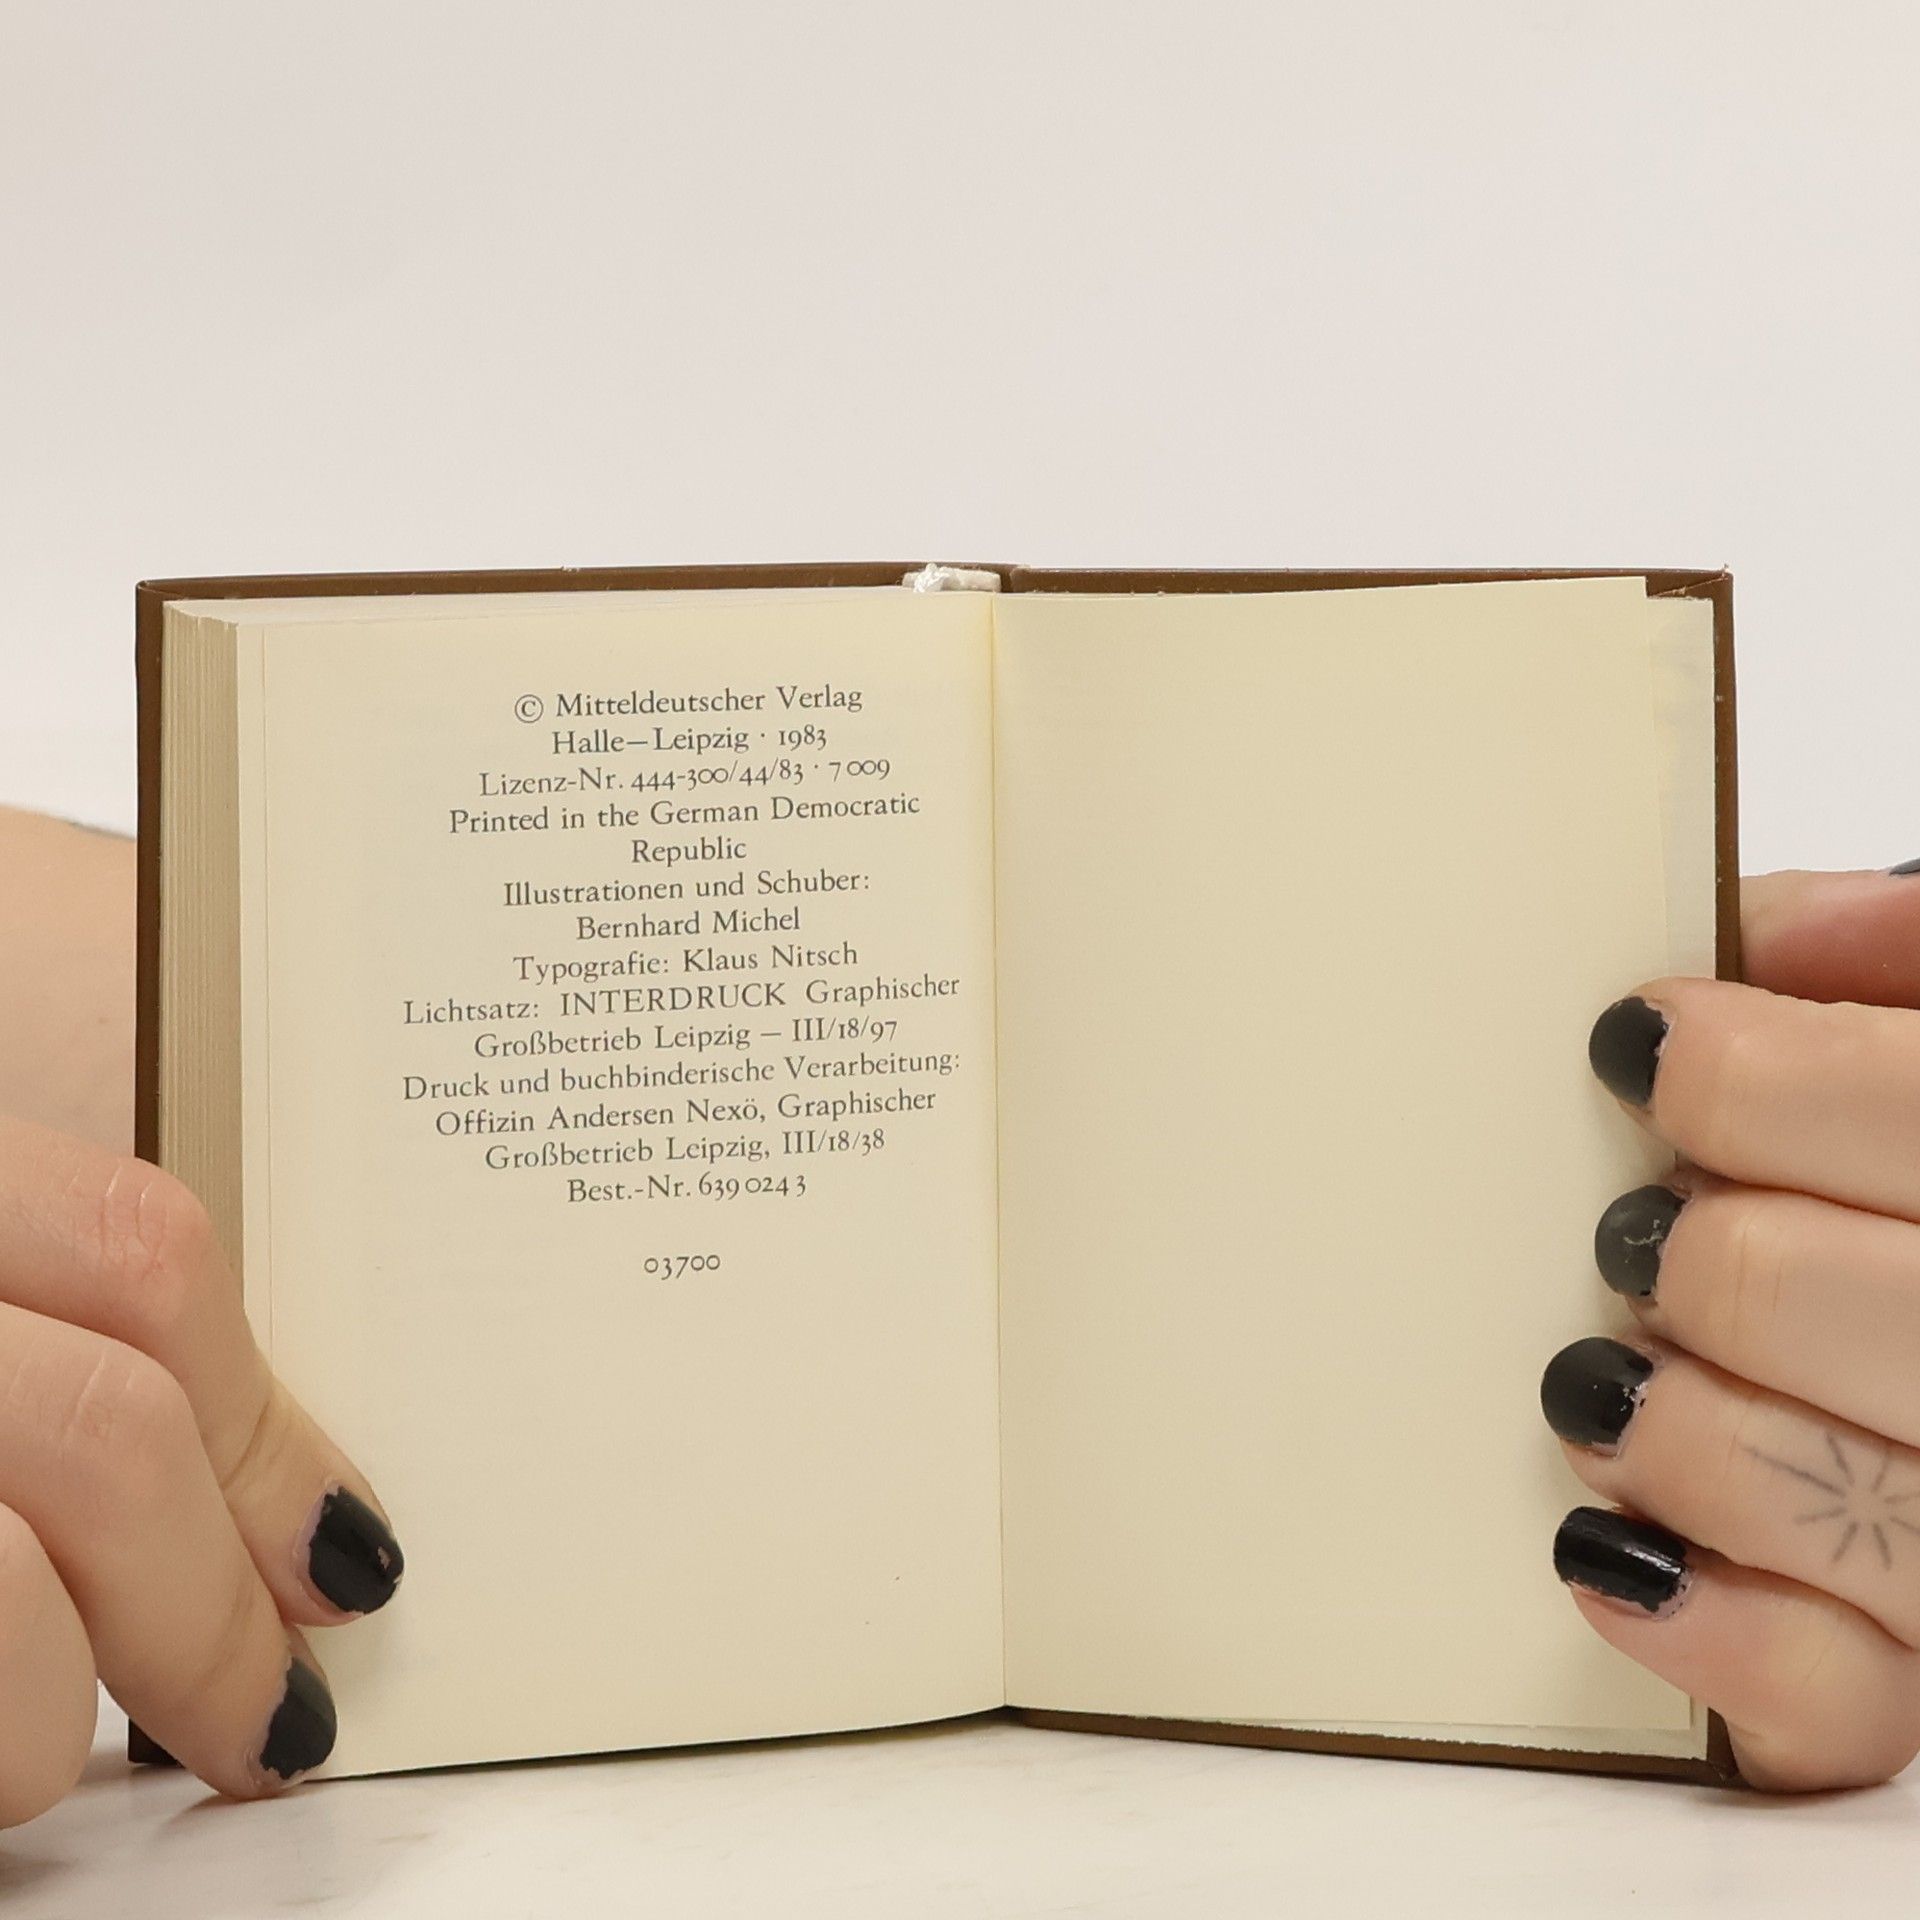 © Mitteldeutscher Verlag
Halle—Leipzig · 1983
Lizenz-Nr. 444-300/44/83 · 7 009
Printed in the German Democratic
Republic
Illustrationen und Schuber:
Bernhard Michel
Typografie: Klaus Nitsch
Lichtsatz: INTERDRUCK Graphischer
Großbetrieb Leipzig — III/18/97
Druck und buchbinderische Verarbeitung:
Offizin Andersen Nexö, Graphischer
Großbetrieb Leipzig, III/18/38
Best.-Nr. 639 024 3
03700